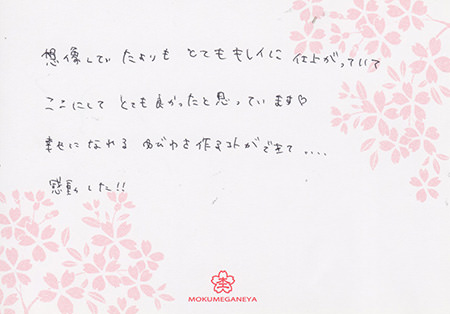 想像していたよりも とてもキレイに 仕上がっていて
ここにして とても良かったと思っています♡
幸せになれる ゆびわを作るコトができて....
感動しました!!
MOKUMEGANEYA